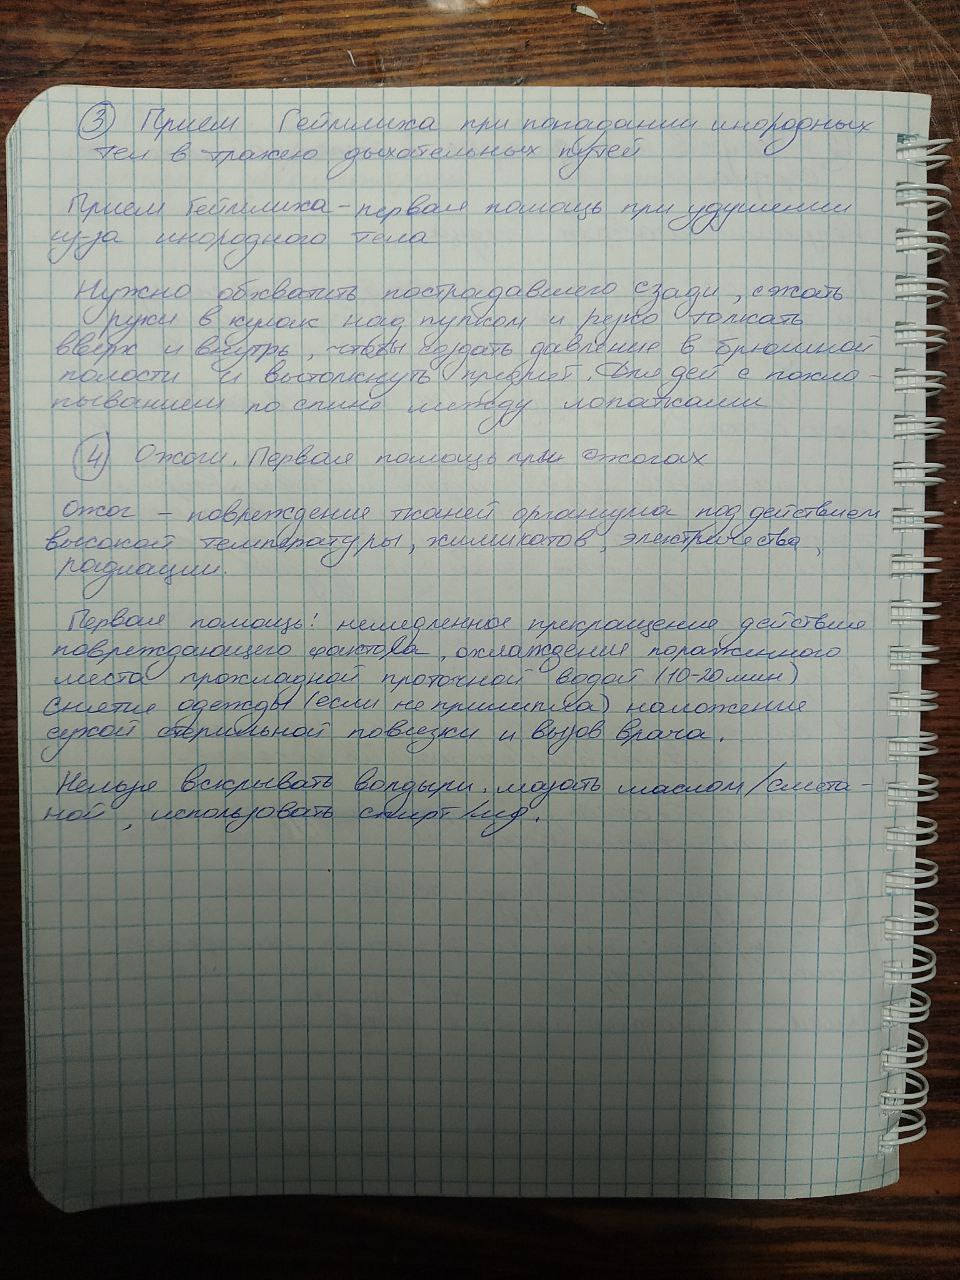 3 Прием Геймлиха при попадании инородных
тел в трахею дыхательных путей
Прием Геймлиха - первая помощь при удушении
из-за инородного тела
Нужно обхватить пострадавшего сзади, сжать
руки в кулак над пупком и резко толкать
вверх и внутрь, чтобы создать давление в брюшной
полости и вытолкнуть предмет. Для дей с похло-
пыванием по спине между лопатками
4 Ожоги. Первая помощь при ожогах
Ожог - повреждение тканей организма под действием
высокой температуры, химикатов, электричества,
радиации.
Первая помощь: немедленное прекращение действие
повреждающего фактора, охлаждение пораженного
места прохладной проточной водой (10-20 мин)
снятие одежды (если не прилипла) наложение
сухой стерильной повязки и вызов врача.
Нельзя вскрывать волдыри, мазать маслом/смета-
ной, использовать спирт/йод.